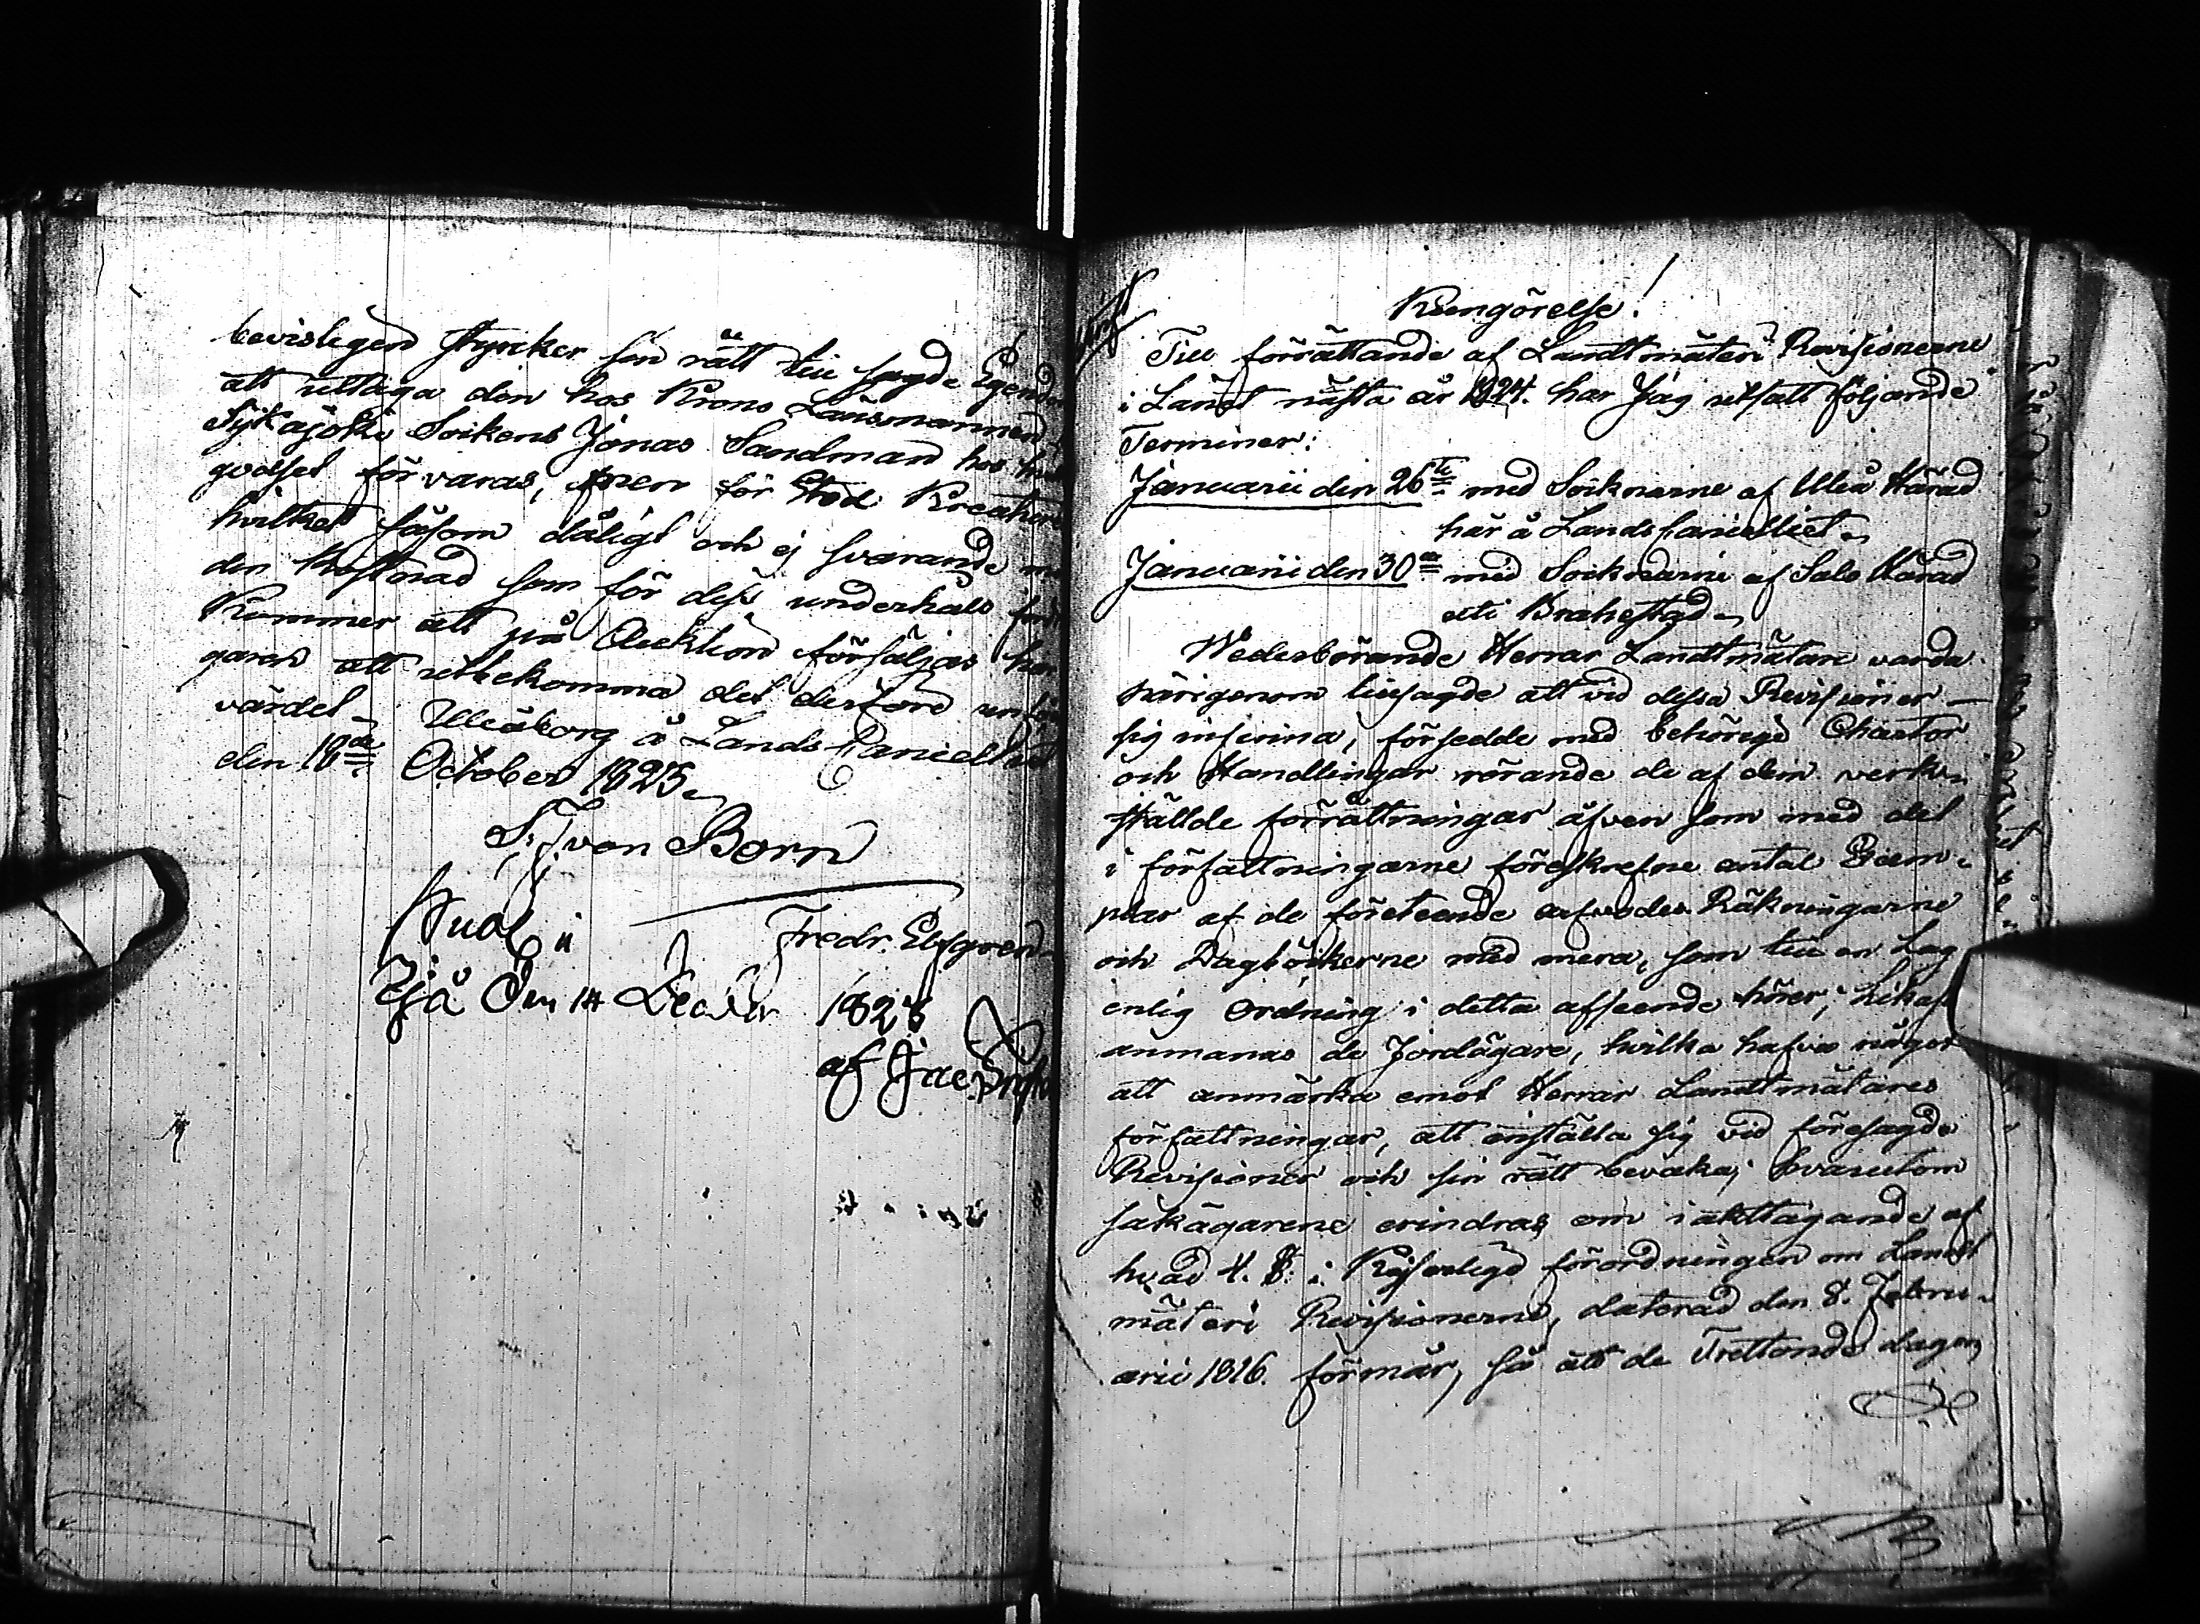 bevisligen styrker sin rätt till sagde Egendom
att uttaga den hos Krono Länsmannen
Sijkajoki Sockens Jonas Sandman hos
godset förvaras, men för Stod Kreaturet
hvilket såsom dåligt och ej svarande
den kostnad som för dess underhåll
kommer att på Auktion försäljas har
garen att utbekomma det derföre
värdet. Uleåborg å Lands Cancelliet
den 18de October 1823.
S. F. von Born
Fredr. Elfgren
den 14 Decbr 1823
af
Kungörelse!
Till förrättande af Landtmäteri Revisionerne
i Länet nästa år 1824. har Jag utsatt följande
Terminer:
Januarii den 26te med Socknarne af Uleå Härad
här å Lands Cancelliet
Januarii den 30de med Socknarne af Salo Härad
uti Brahestad
Wederbörande Herrar Landtmätare varda
härigenom tillsagde att vid dessa Revisioner
sig infinna, försedde med behörige Chartor
och Handlingar rörande de af dem verk-
ställde förrättningar äfven som med det
i författningarne föreskrefne antal Exem-
plar af de företeende arfvodes Räkningarne
och Dagböckerne med mera, som till en Lag
enlig Ordning i detta afseende hörer; lika
anmanas de Jordägare, hvilka hafva något
att anmärka emot Herrar Landtmätares
författningar, att inställa sig vid föresagde
Revisioner och sin rätt bevaka; hvarutom
sakägarene erindras om iakttagande af
hvad 4. §. i Kejserliga förordningen om Landt
mäteri Revisionerne, daterad den 8. Febru-
arii 1816. förmår, så att de Trettonde dagen